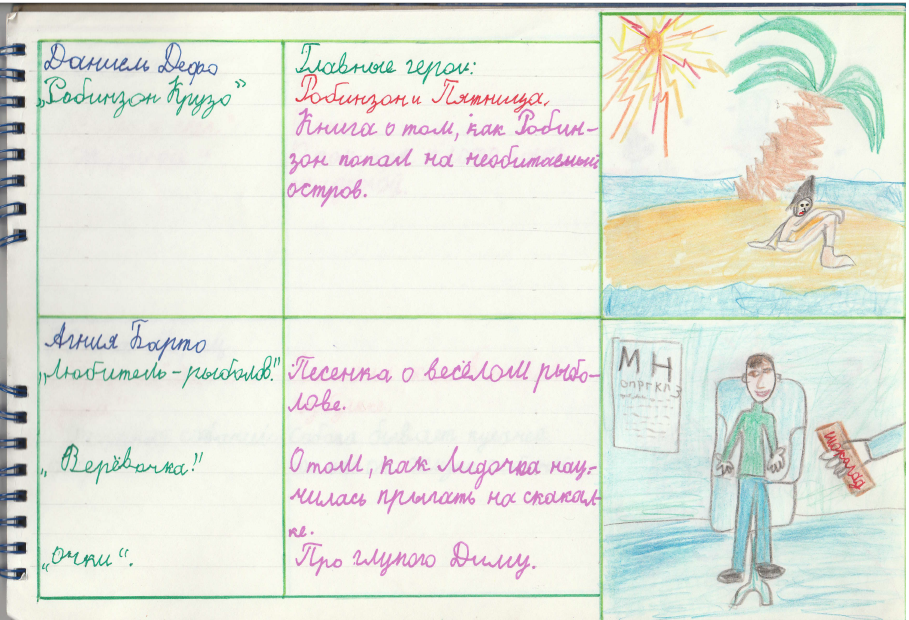 Даниель Дефо
„Робинзон Крузо"
Главные герои:
Робинзон и Пятница.
Книга о том, как Робин-
зон попал на необитаемый
остров.
Агния Барто
„Любитель-рыболов."
Песенка о весёлом рыбо-
лове.
„Верёвочка!"
О том, как Лидочка нау-
чилась прыгать на скакал-
ке.
„Очки".
Про глупого Диму.
М Н
опргклз
шоколад